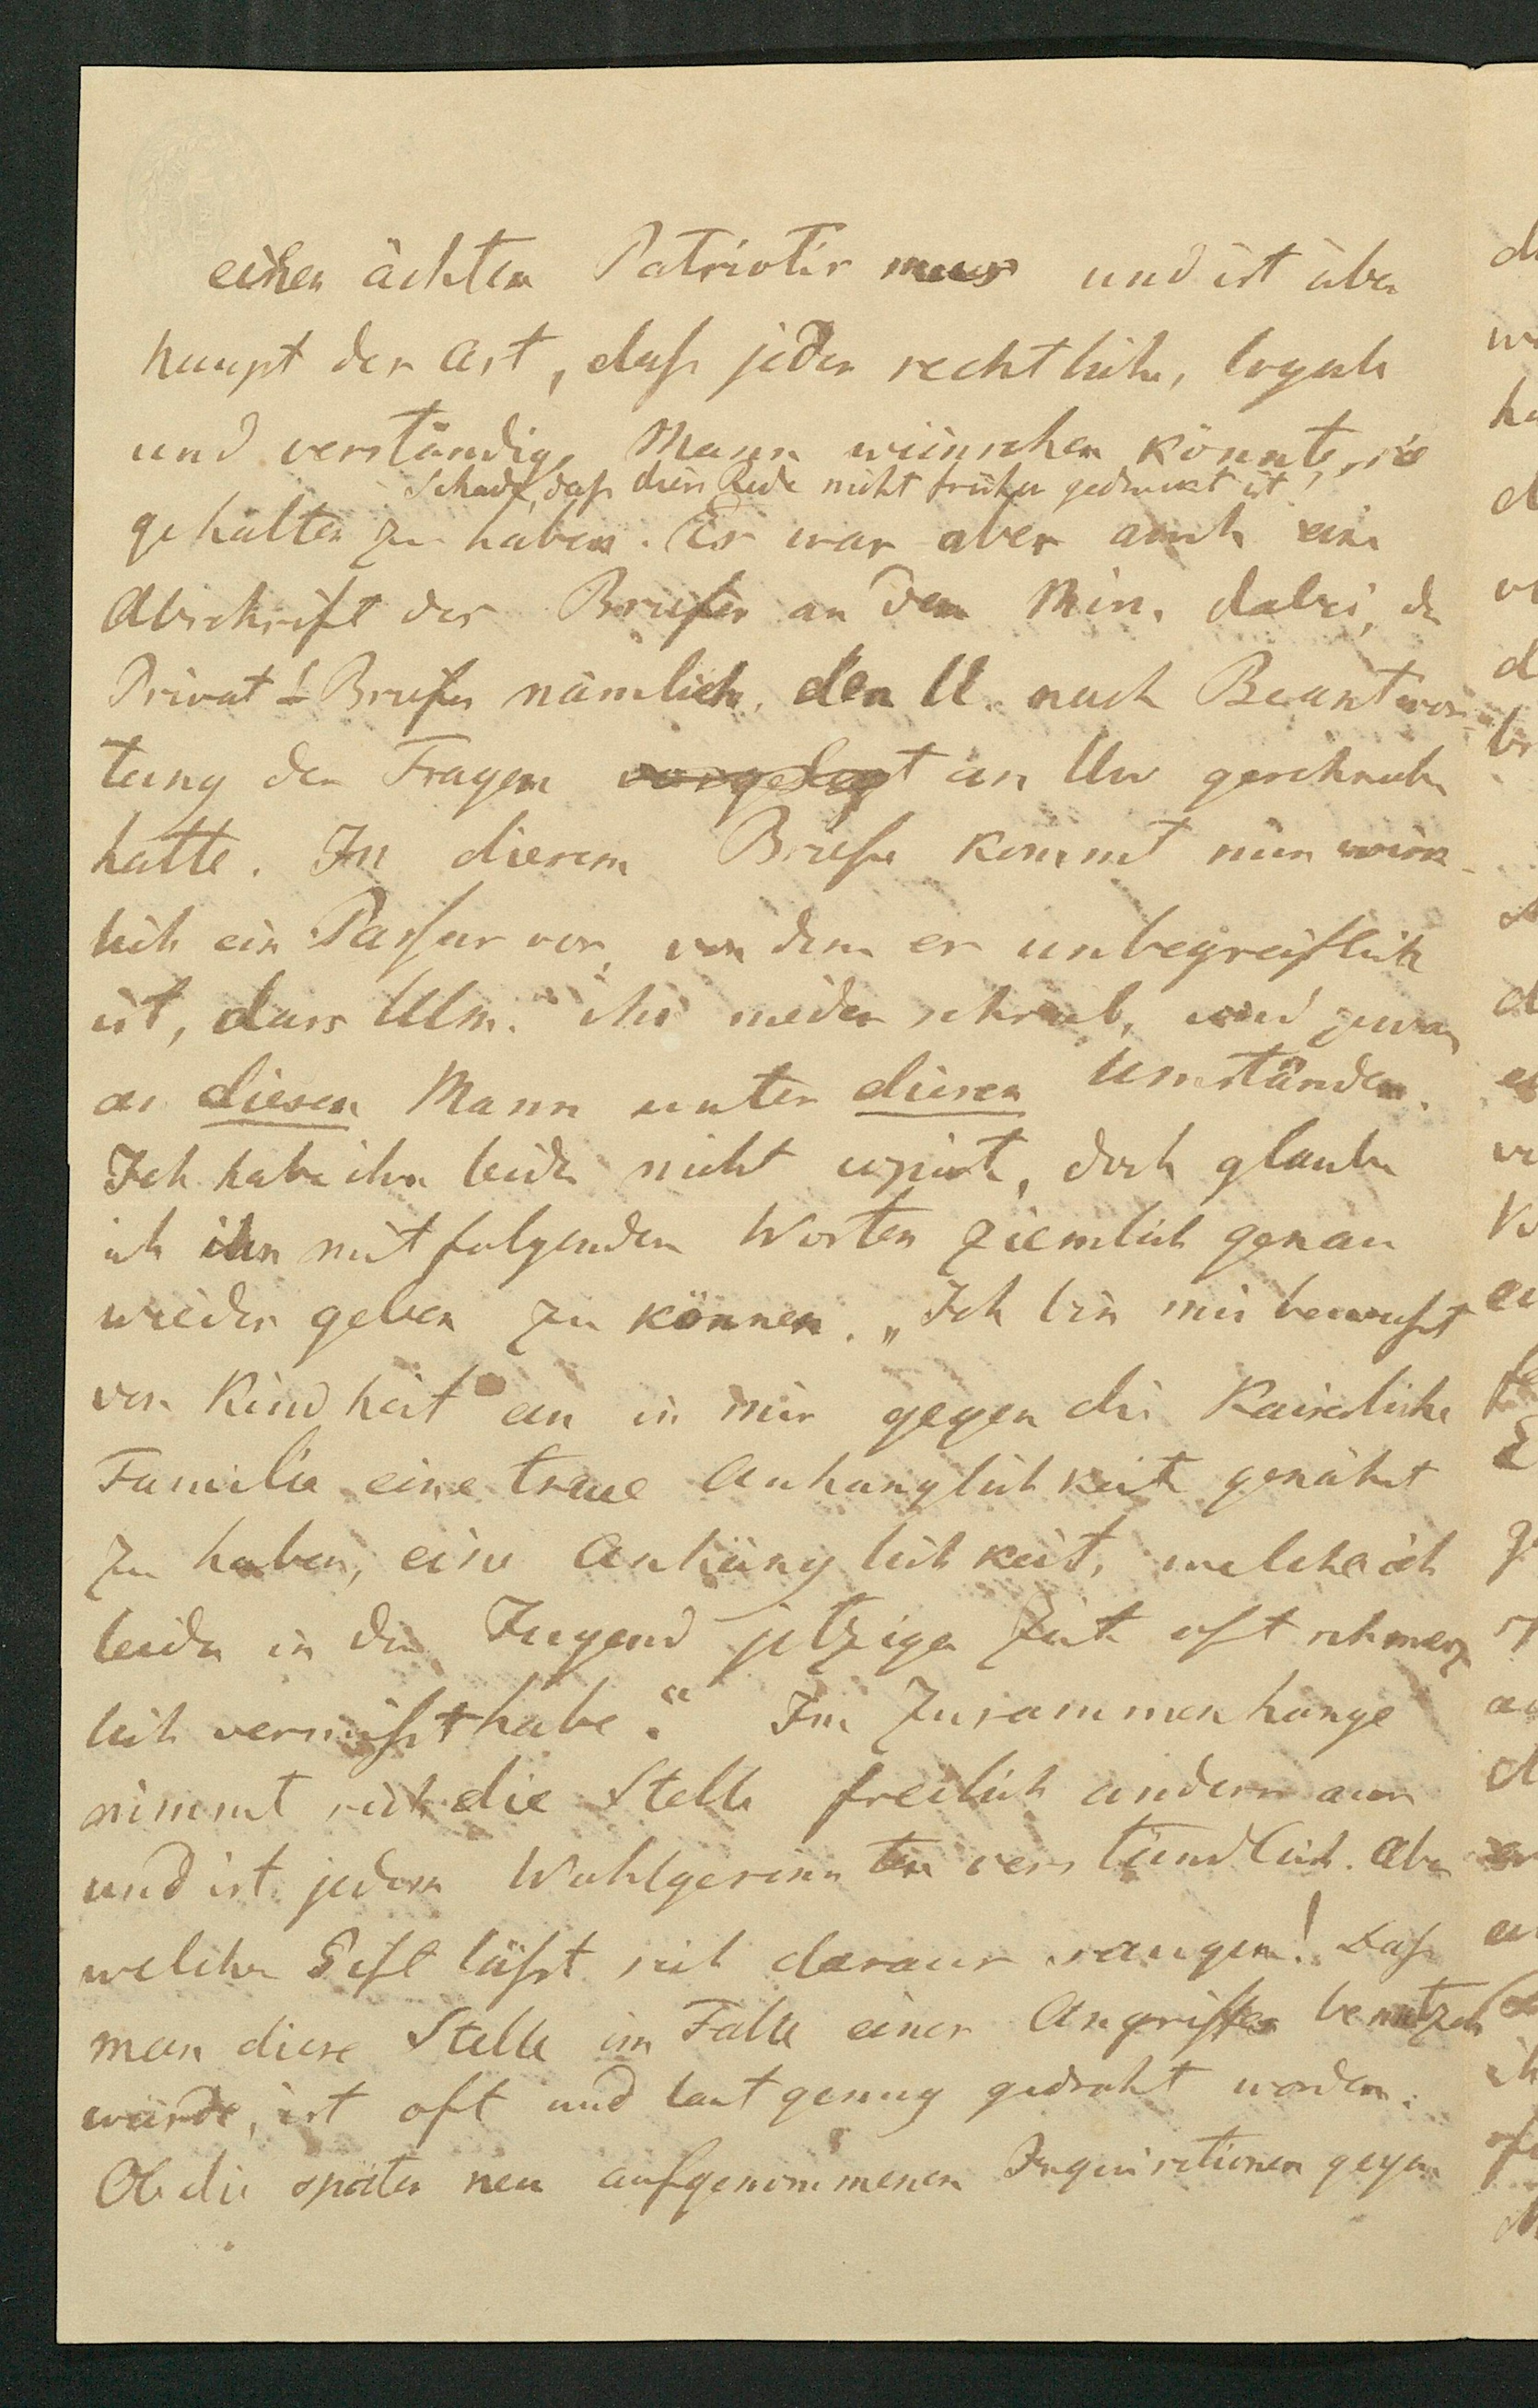 einen ächten Patriotismus und ist über
haupt der Art, daß jeder rechtliche, loyale
und verständige Mann wünschen könnte, sie
Schade, daß diese Rede nicht früher gedruckt ist
gehalten zu haben. Es war aber auch eine
Abschrift des Briefes an den Min. dabei, des
Privat-Briefes nämlich, den U. nach Beantwor-
tung der Fragen vorgelegt an Uw geschrieben
hatte. In diesem Briefe kommt nun wirk-
lich ein Passus vor, von dem es unbegreiflich
ist, dass Ulm. ihn nieder schrieb, und zwar
an diesen Mann unter diesen Umständen.
Ich habe ihn leider nicht copirt, doch glaube
ich ihn mit folgenden Worten ziemlich genau
wieder geben zu können. „Ich bin mir bewußt
von Kindheit an in mir gegen die Kaiserliche
Familie eine treue Anhänglichkeit genährt
zu haben, eine Anhänglichkeit, welche ich
leider in der Jugend jetziger Zeit oft schmerz
lich vermißt habe.“ Im Zusammenhange
nimmt sich die Stelle freilich anders aus
und ist jedem Wohlgesinnten verständlich. Aber
welches Gift läßt sich daraus saugen! Daß
man diese Stelle im Falle eines Angriffes benutzen
würde, ist oft und laut genug gedroht worden.
Ob die später neu aufgenommenen Inquisitionen gegen